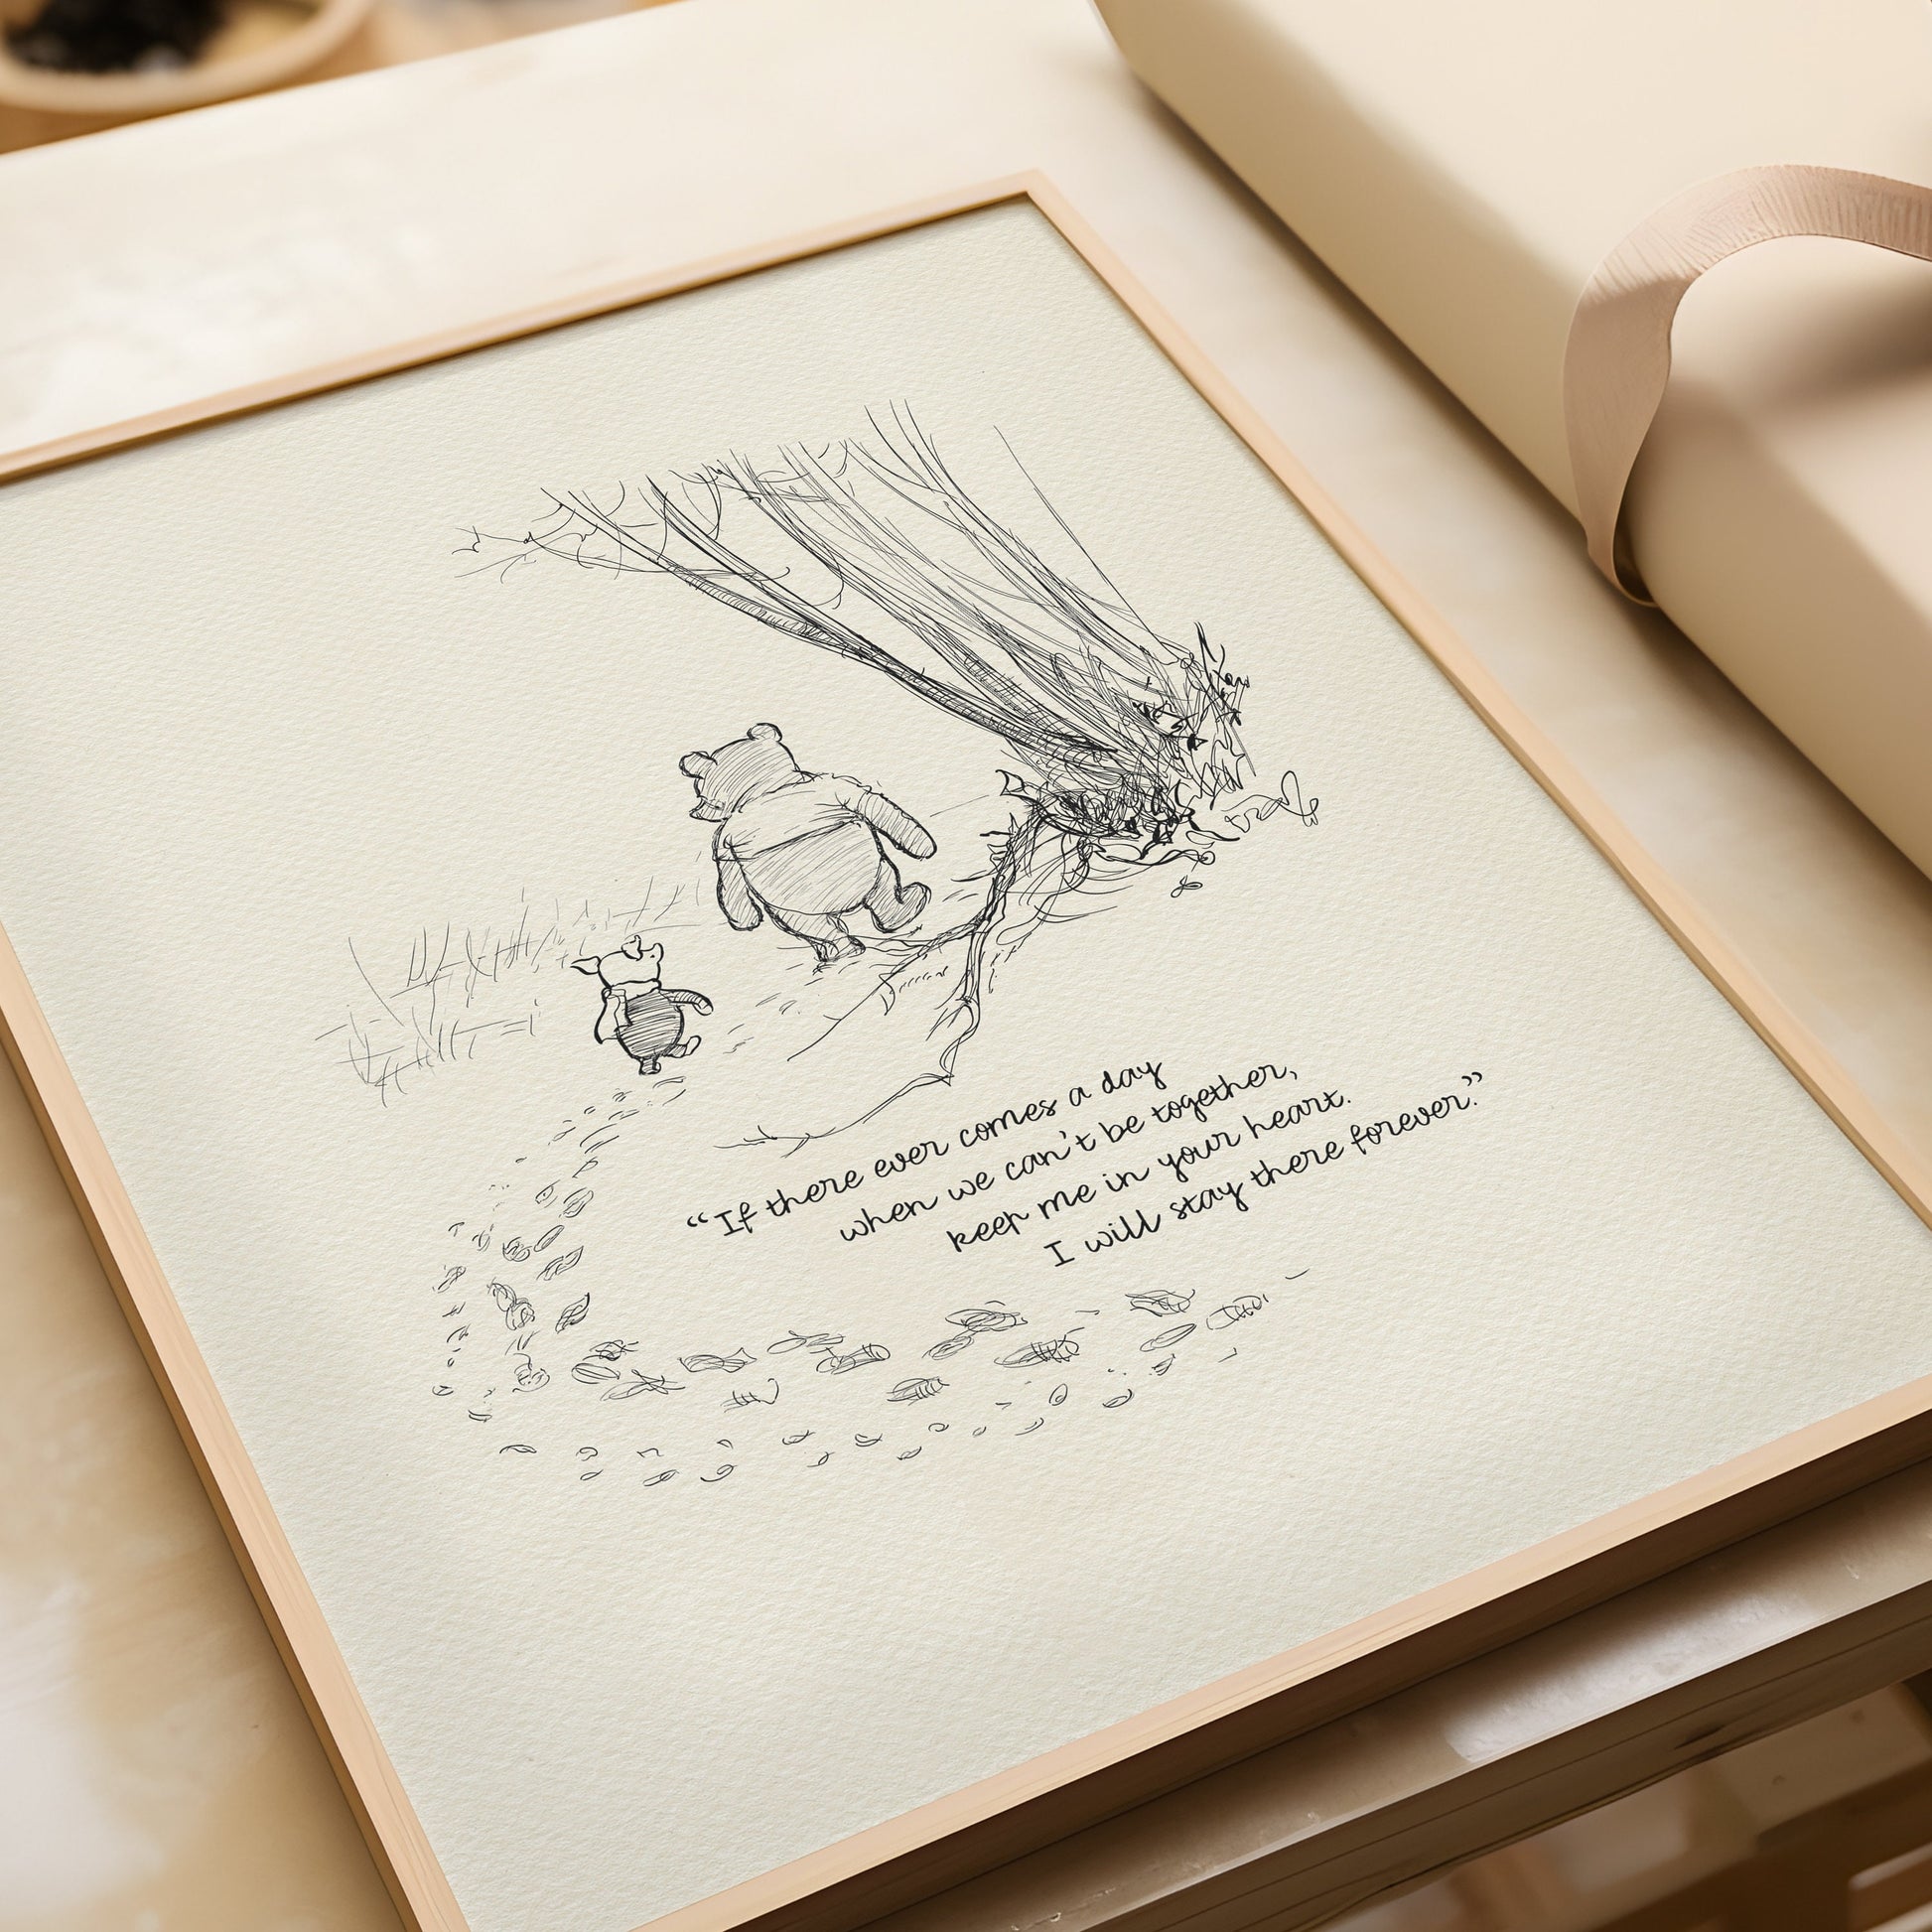 “If there ever comes a day
when we can't be together,
keep me in your heart.
I will stay there forever.”